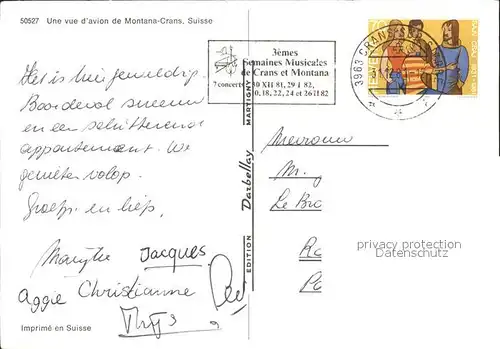 50527 Une vue d'avion de Montana-Crans, Suisse
3èmes
Semaines Musicales
de Crans et Montana
7 concerts 30 XII 81, 29 I 82,
10, 18, 22, 24 et 26 II 82
3963 CRANS
HELVETIA
Het is hier geweldig.
Boordevol sneeuw
en een schitterend
appartement. We
genieten volop.
Groetjes en liefs,
Marijke Jacques
Aggie Christianne
Thijs
Imprimé en Suisse
EDITION Darbellay MARTIGNY
Mevrouw
M.
Le Bro
Ro
Po
privacy protection
Datenschutz